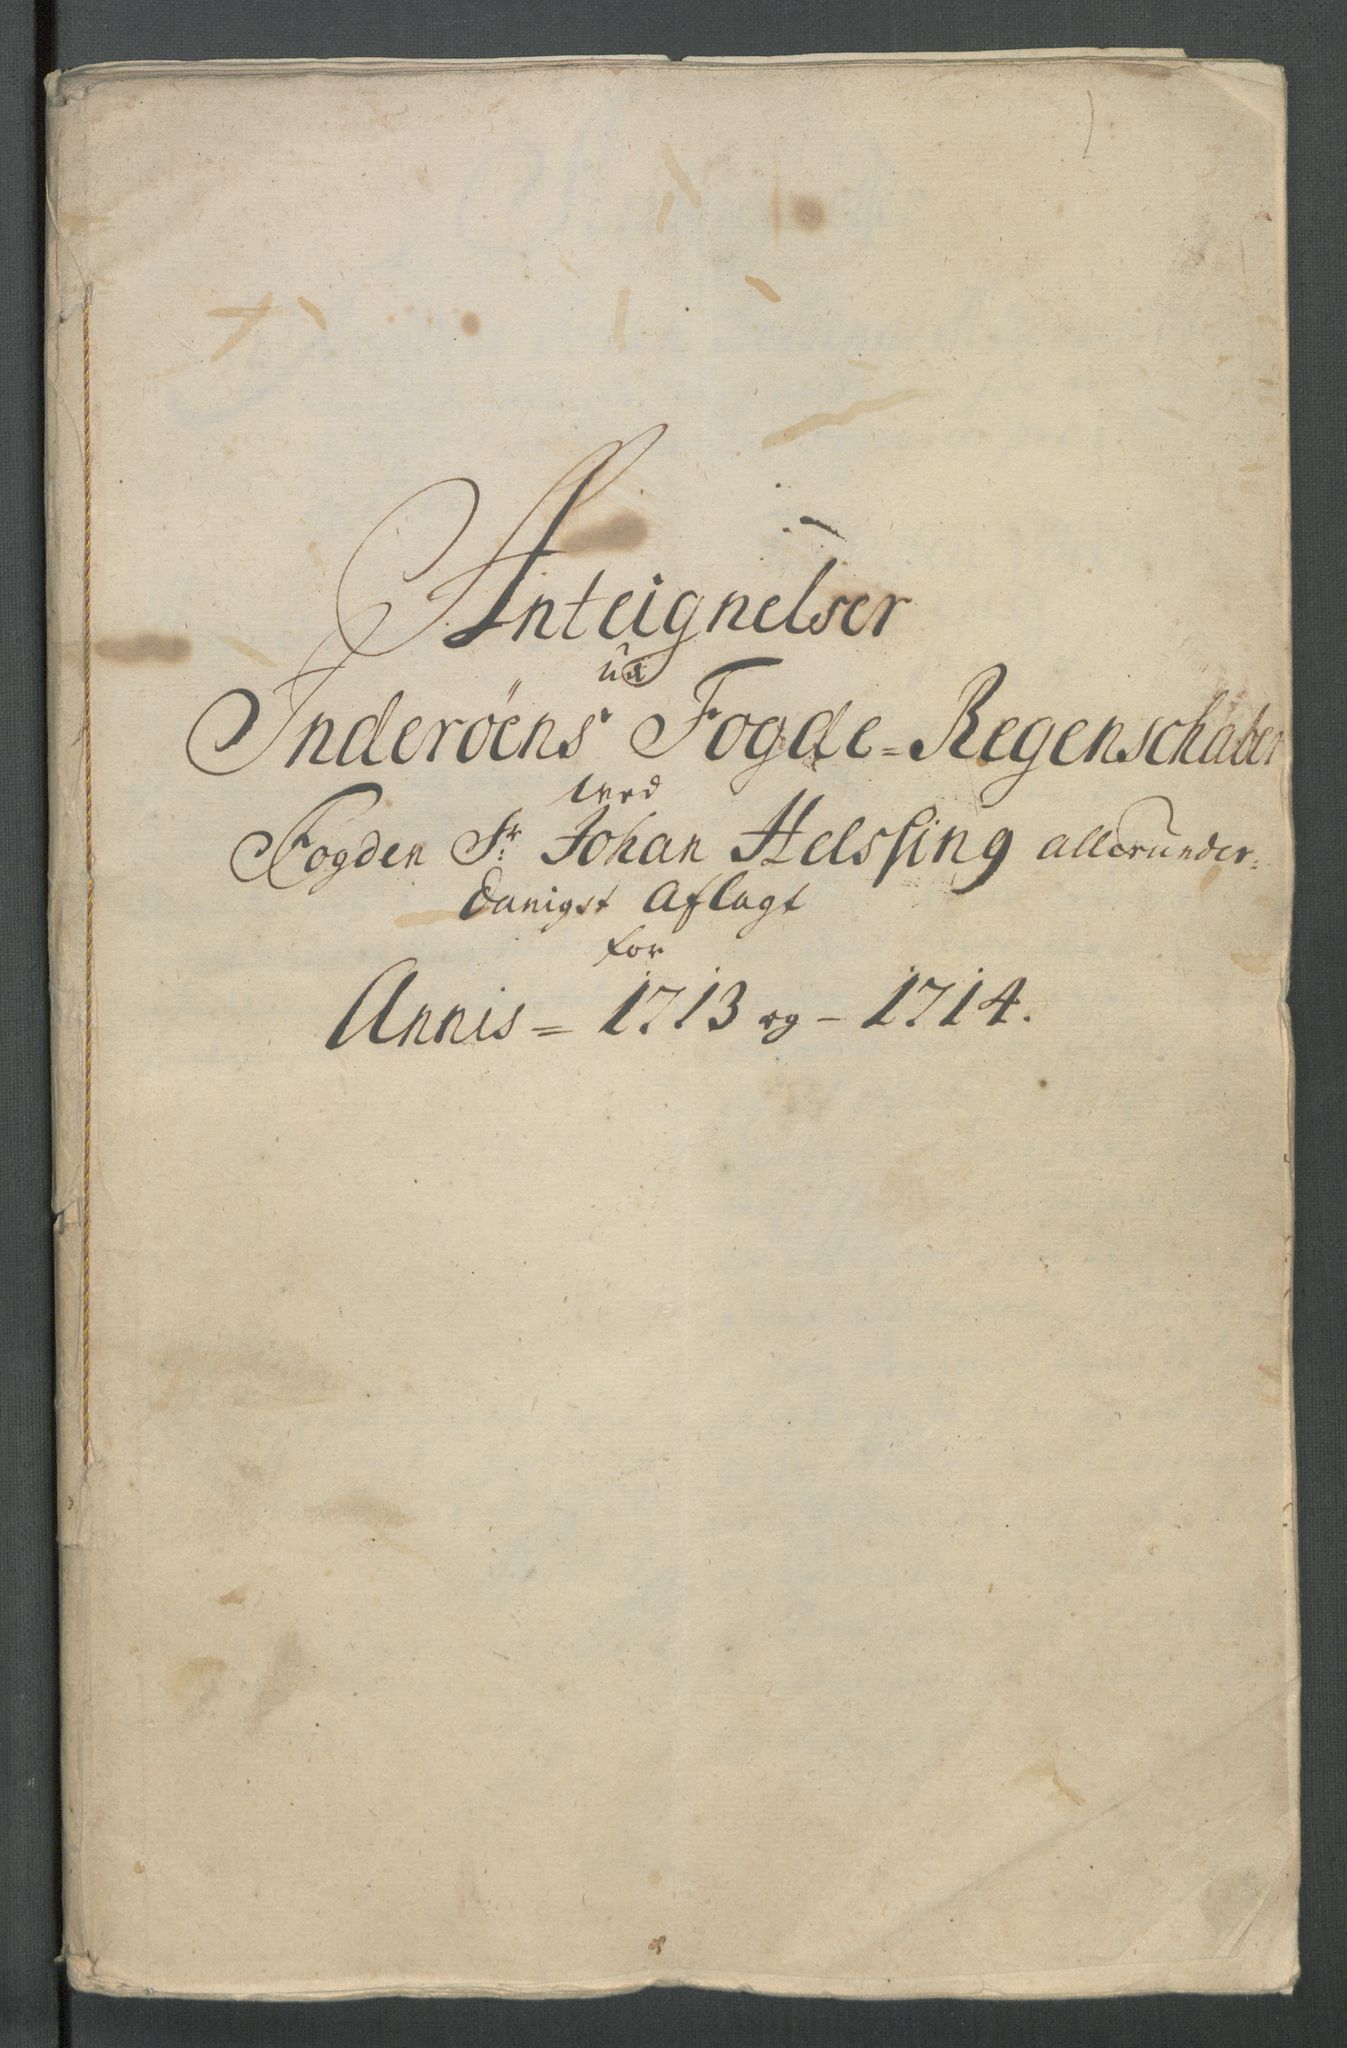 Anteignelser
ud
Inderöens Fogde-Regenschaber
ved
Fogden Sr: Johan Helsſing allerunder-
danigst Aflagt
for
Annis = 1713 og - 1714.